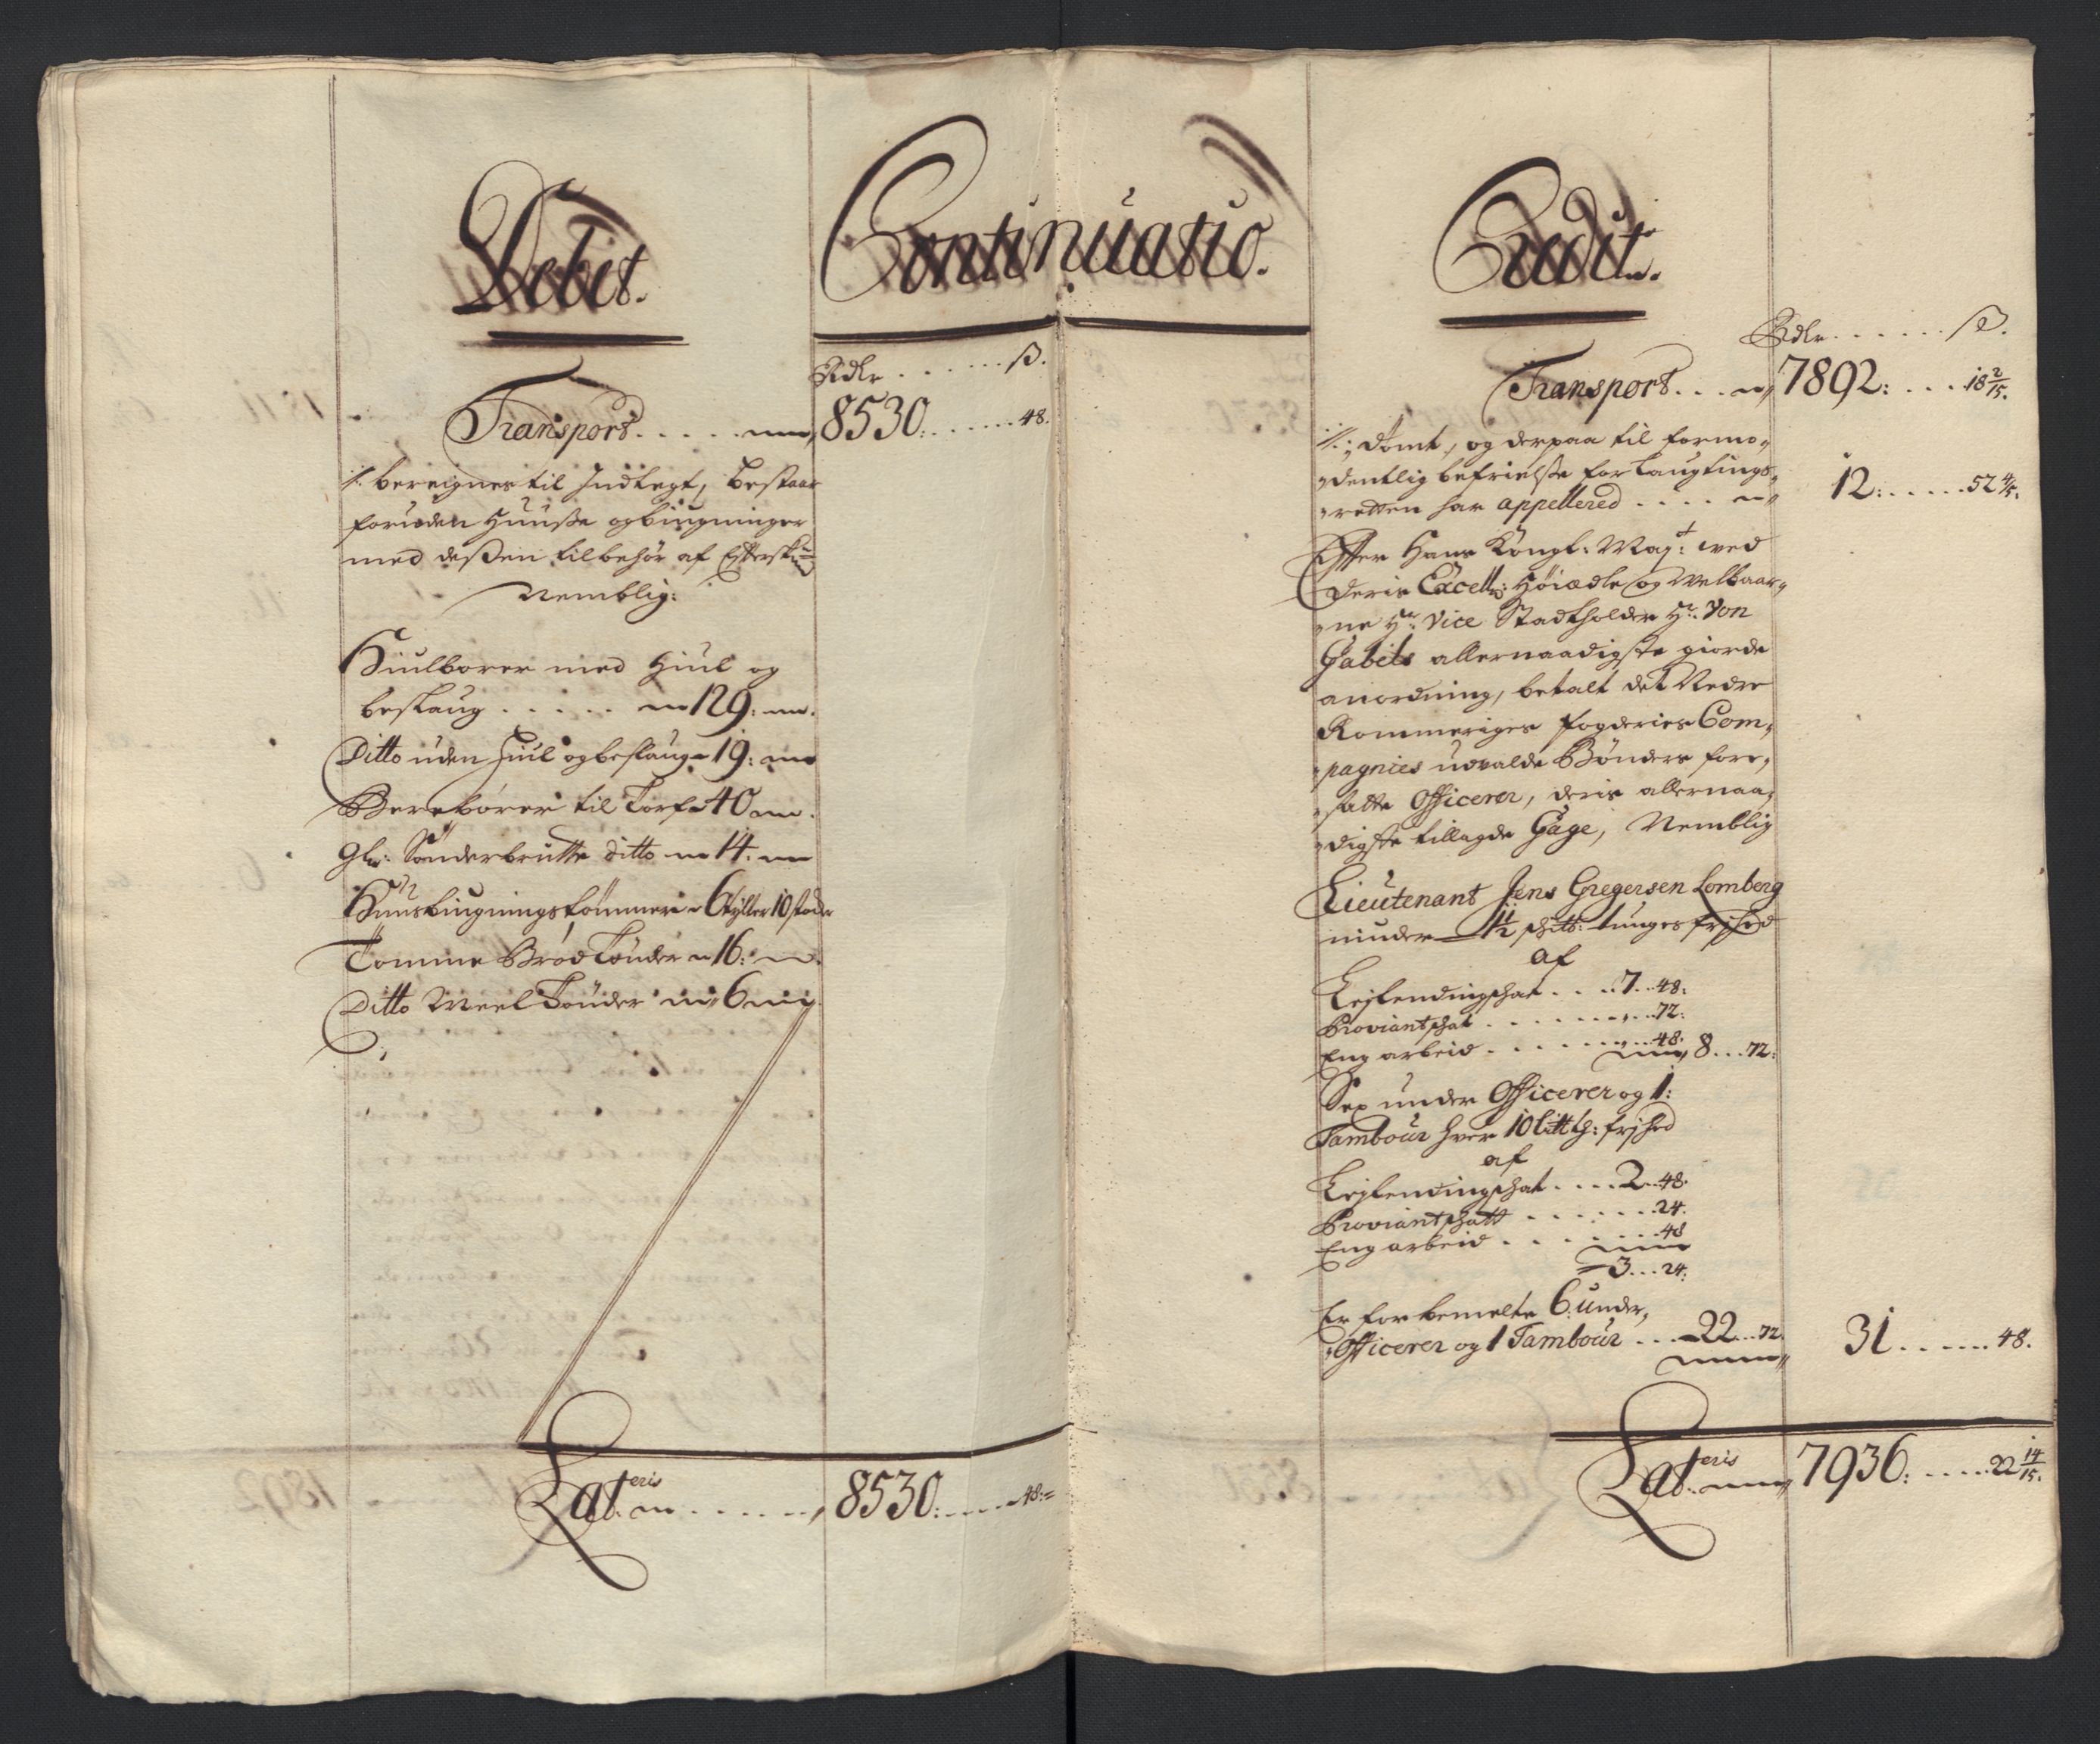 Debet.
Continuatio.
Rdlr ...... ß.
Transport ..... 8530: ...... 48.
bereignes til Indtegt, bestaar
foruden Huuse og bÿgninger
med deßen tilbehör af
Nemblig:
Hiulborer med Hiul og
beslaug ..... 129:
Ditto uden Hiul og beslaug 19:
Berebörer til Torf 40
gl: Sönderbrutte ditto 14:
Huusbÿgningstömmer 6 tÿlter 10 stocker
Tomme Brød Tönder 16:
Ditto Meel Tönder 6
Lateris ...... 8530: ..... 48:
Credit.
Rdlr ...... ß.
Transport ... 7892: ... 18 2/15.
dömt, og derpaa til formo,
dentlig befrielse for Laugtings,
retten har appellered .... 12: ..... 52 4/5.
Efter Hans Köngl: Maÿt: wed
Deris Excell: Höiædle og Welbaar,
ne Hr: Vice Stadtholder Hr: Von
Gabels allernaadigste giorde
anordning, betalt det Nedre
Rommeriges fogderies Com,
pagnies udvalde Bønders fore,
satte Officerer, deris allernaa,
digste tillagde Gage, Nemblig
Lieutenant Jens Gregersen Lomberg
under 1 1/2 schttb: tunges frihed
af
Leilendingschat .... 7 .. 48:
Proviantschat ........ 72:
Eng arbeid ........ 48:
8 ... 72:
Sex under Officerer og 1:
Tambour hver 10 Litt: frihed
af
Leilendingschat .... 2 .. 48.
Proviantschatt ...... 24.
Eng arbeid ....... 48
3 ... 24:
Er for bemelte 6: under,
Officerer og 1 Tambour ... 22 .. 72. 31 ...... 48.
Lateris 7936: ..... 22 14/15.